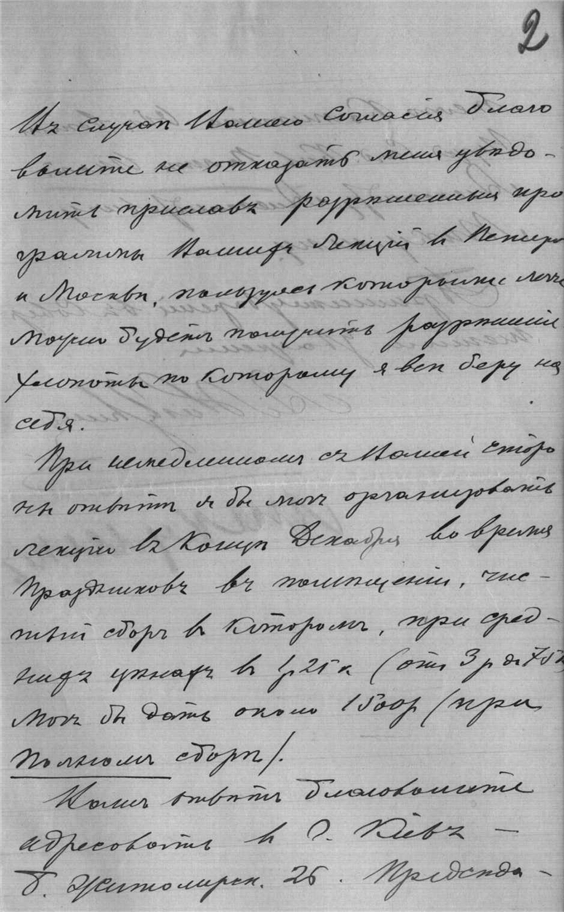 2
Въ случаѣ Вашего согласія благо
волите не отказать меня увѣдо-
мить приславъ разрѣшенныя про
граммы Вашихъ лекцій в Петер
и Москвѣ, пользуясь которыми легче
можно будетъ получить разрѣшеніе
хлопоты по которому я всѣ беру на
себя.
При немедленномъ съ Вашей сторо
ны отвѣтѣ я бы могъ организовать
лекцію въ Концѣ Декабря во время
праздниковъ въ помѣщеніи, чис-
тый сборъ в которомъ, при сред-
нихъ цѣнахъ в 1р 25 к (отъ 3 р до 75 к
могъ бы дать около 1500р (при
полномъ сборѣ).
Вашъ отвѣтъ благоволите
адресовать в г. Кіевъ —
б. Житомирск. 26. Предсѣда-